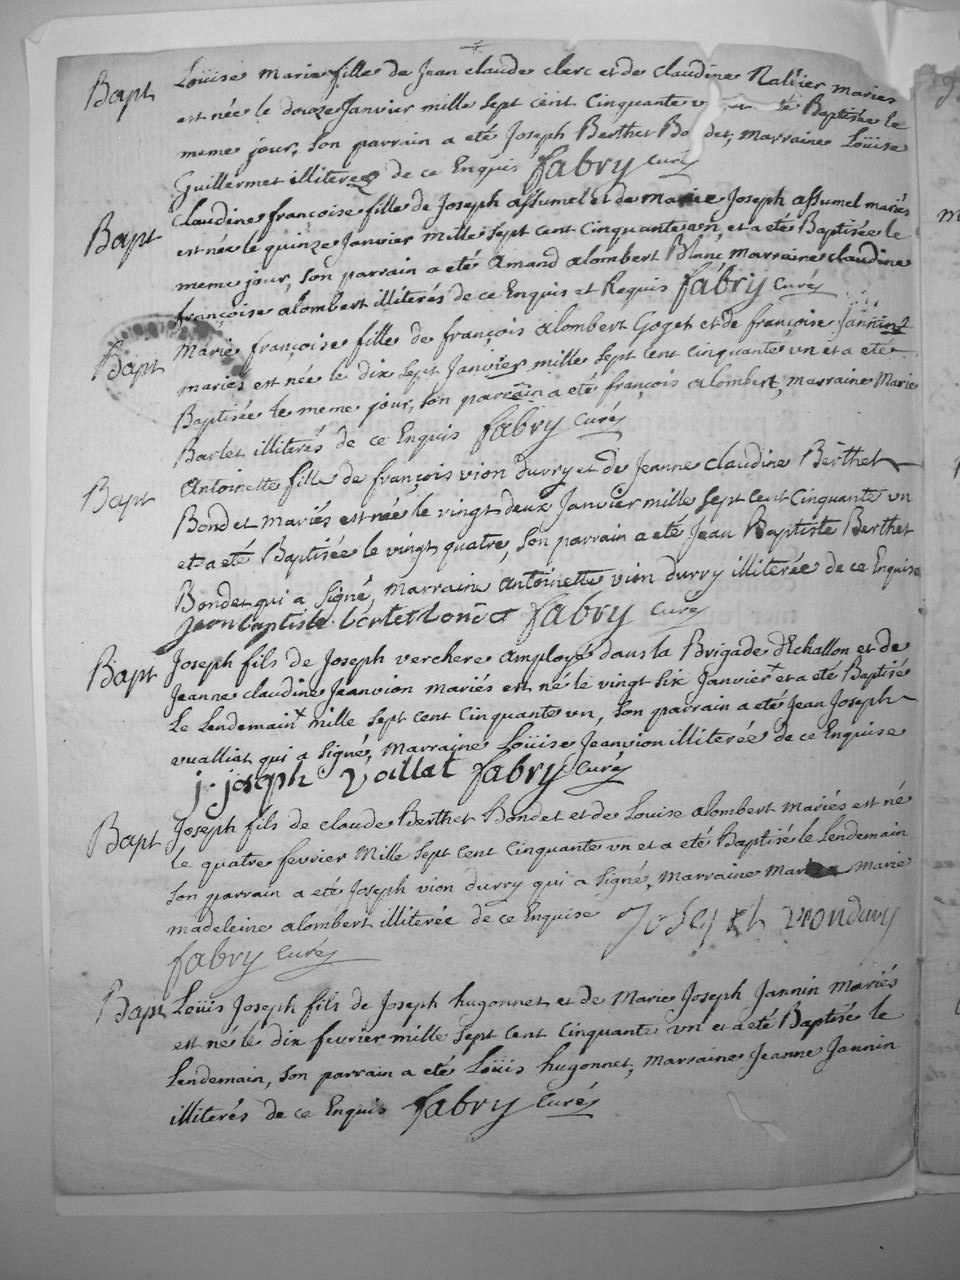 Bapt Loüise Marie fille de Jean claude clerc et de Claudine Nallier mariés
est née le douze Janvier mille sept cent Cinquante Baptisée le
meme jour, Son parrain a eté Joseph Berthet Bondet, Marraine Loüise
Guillermet illiterés de ce Enquis fabry Curé
Bapt Claudine françoise fille de Joseph assumel et de marie Joseph assumel mariés
est née le quinze Janvier mille Sept Cent Cinquante un, et a eté Baptisée le
meme jour, Son parrain a eté Amand alombert Blanc Marraine claudine
françoise alombert illiterés de ce Enquis et Requis fabry Curé
Bapt Marie françoise fille de françois alombert Goget et de françoise Jannin
mariés est née le dix Sept Janvier mille Sept Cent Cinquante un et a eté
Baptisée le meme jour, Son parrain a eté françois alombert, marraine Marie
Barlet illiterés de ce Enquis fabry Curé
Bapt Antoinette fille de françois vion durry et de Jeanne Claudine Berthet
Bondet Mariés est née le vingt deux Janvier mille Sept Cent Cinquante un
et a eté Baptisée le vingt quatre, Son parrain a eté Jean Baptiste Berthet
Bondet qui a Signé, marraine Antoinette vion durry illiterée de ce Enquise
Jean baptiste bertet bondet fabry Curé
Bapt Joseph fils de Joseph verchere amployé dans la Brigade d'Echallon et de
Jeanne claudine Jeanvion mariés est né le vingt six Janvier et a eté Baptisé
Le Lendemain mille Sept Cent Cinquante un, Son parrain a eté Jean Joseph
vualliat qui a signé, Marraine Loüise Jeanvion illiterée de ce Enquise
j. joseph Voillat fabry Curé
Bapt Joseph fils de Claude Berthet Bondet et de Louise alombert Mariés est né
le quatre fevrier Mille Sept Cent Cinquante un et a eté Baptisé le Lendemain
Son parrain a eté Joseph vion durry qui a signé, Marraine Marie
madeleine alombert illiterée de ce Enquise Joseph viondury
fabry Curé
Bapt Loüis Joseph fils de Joseph hugonnet et de Marie Joseph Jannin Mariés
est né le dix fevrier mille Sept Cent Cinquante un et a eté Baptisé le
Lendemain, Son parrain a eté Loüis hugonnet, Marraine Jeanne Jannin
illiterés de ce Enquis fabry Curé